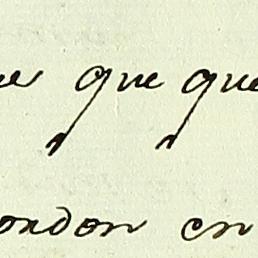 que que
ondon en